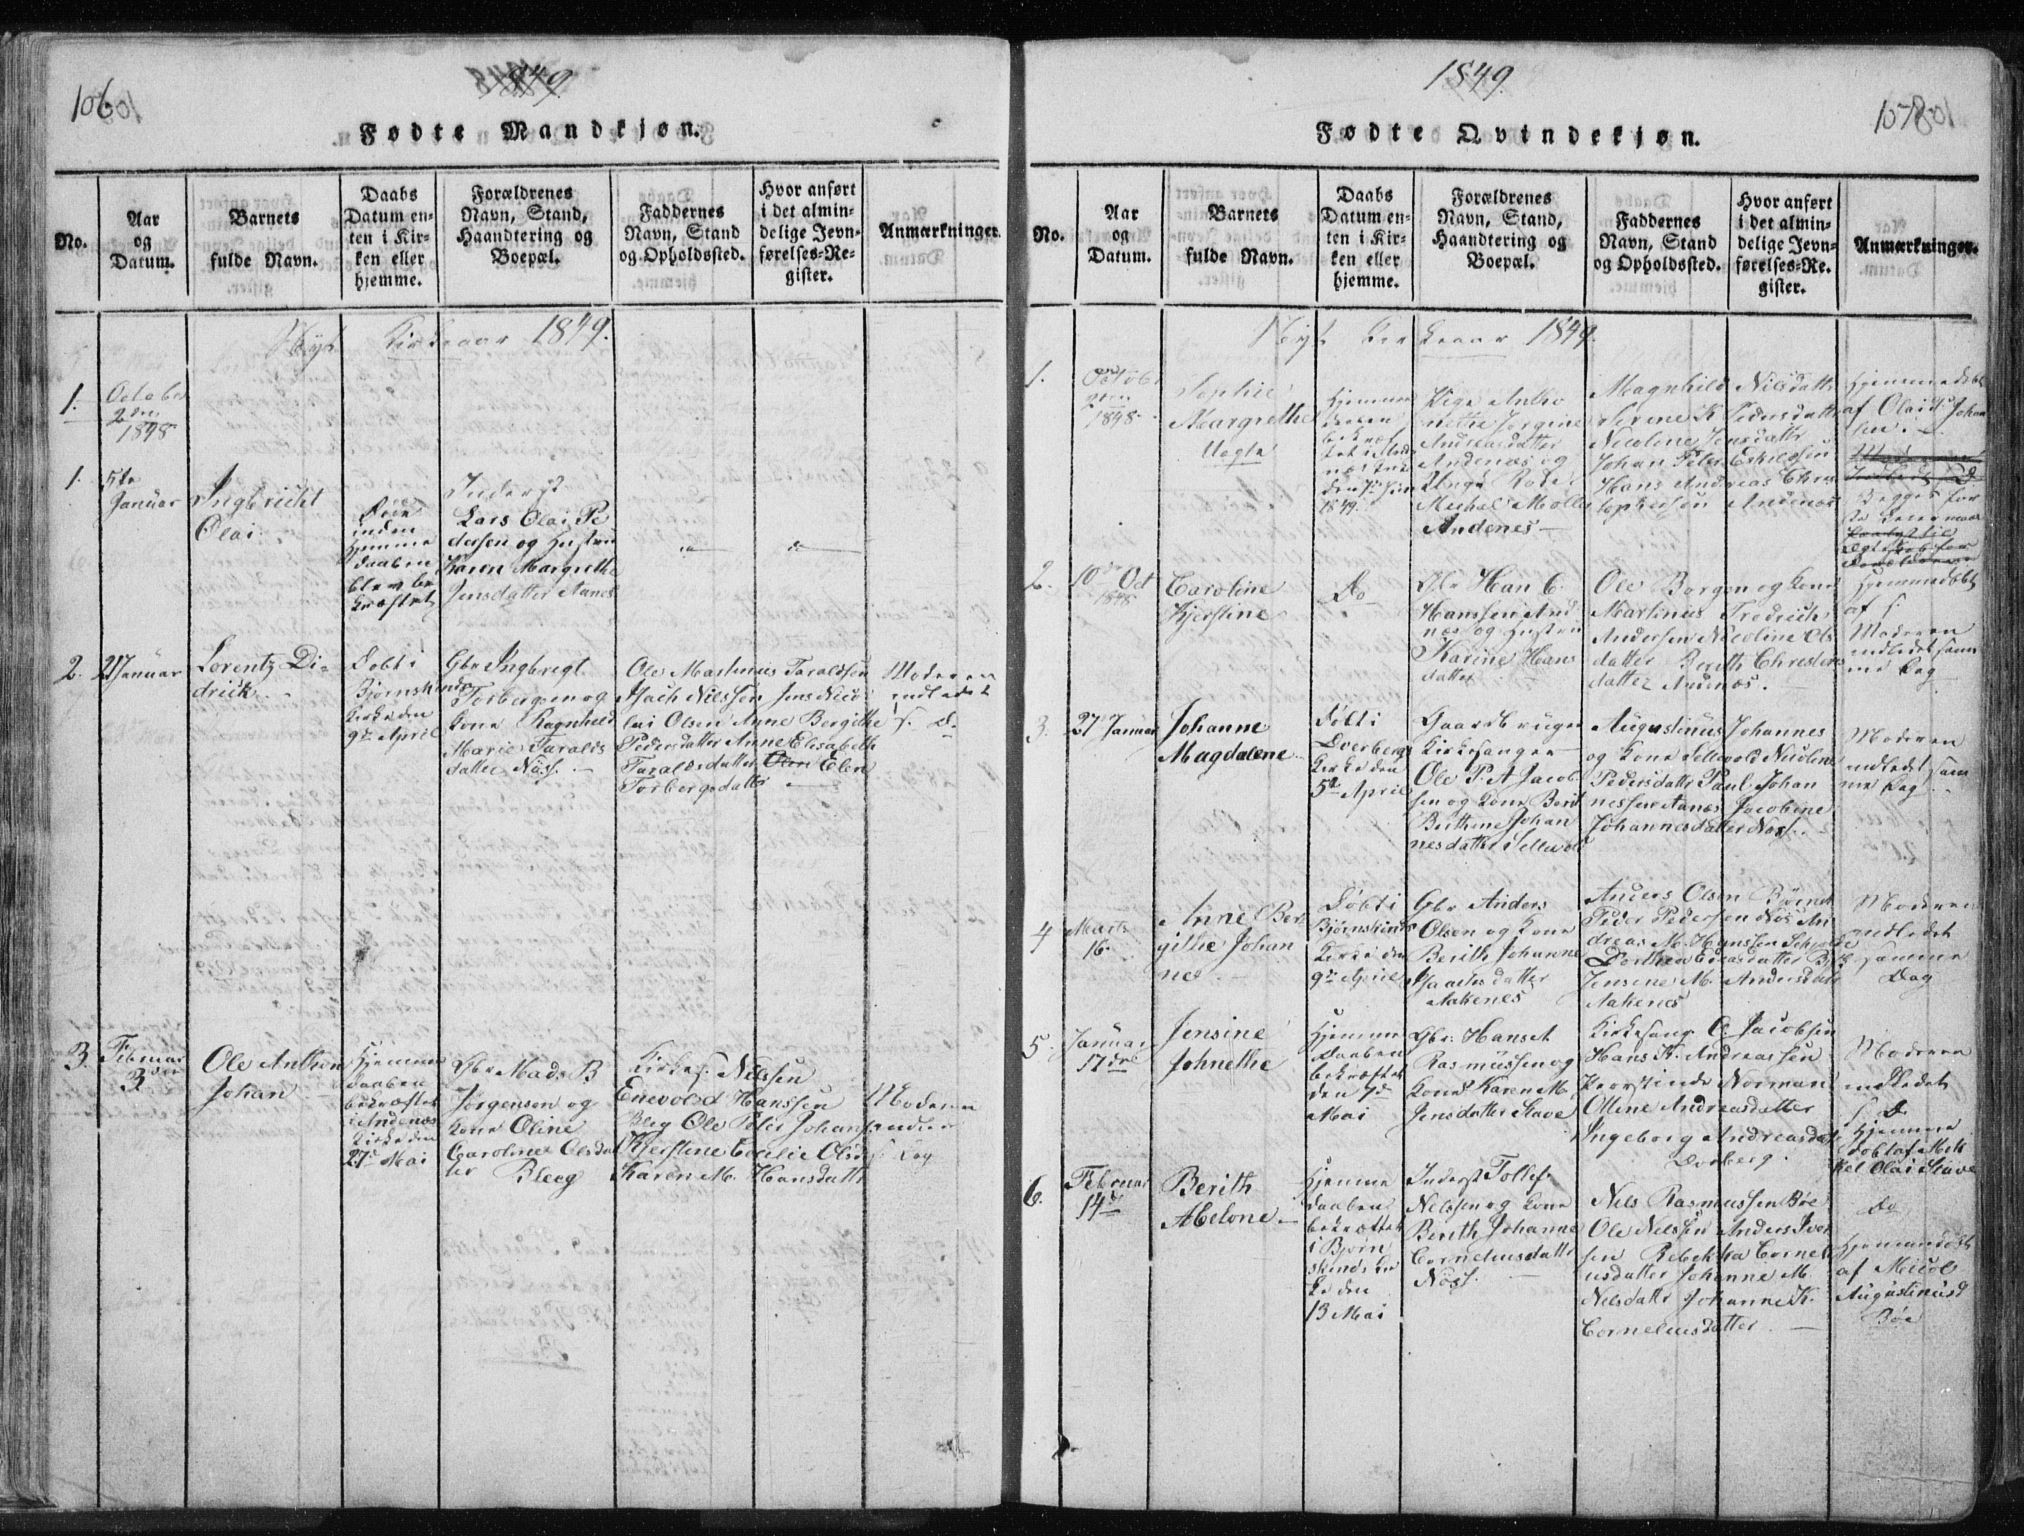 106
1849.
Fødte Mandkjøn.
No.
Aar
og
Datum.
Barnets
fulde Navn.
Daabs
Datum en-
ten i Kir-
ken eller
hjemme.
Forældrenes
Navn, Stand,
Haandtering og
Boepæl.
Faddernes
Navn, Stand
og Opholdssted.
Hvor anført
i det almin-
delige Jevn-
førelses-Re-
gister.
Anmærkninger.
Nyt Kirkeaar 1849.
1.
October
2den
1848
1.
5te
Januar
Ingbricht
Olai
inden
Hjemme
daaben
blev be
kræftet
Inderst
Lars Olai Pe
dersen og Hustru
Karen Margrethe
Jensdatter Aanes
2.
Januar
Lorentz Di-
drick
Døbt i
Bjørnskinds
Kirke den
9de April
Gbr Ingbrigt
Torbergsen og
Kone Ragnhild
Marie Taralds
datter Nøss.
Ole Martinus Taraldsen
Isach Nilssen Jens Nico
lai Olsen Anne Bergithe
Pedersdatter Anne Elisabeth
Taraldsdatter Elen
Torbergsdatter
Moderen
indledet
s. D.
3.
Februar
3die
Ole Anthon
Johan
Hjemme
daaben
bekræftet
i Andenæs
Kirke den
27de Mai
Gbr Mads B
Jørgensen og
Kone Oline
Caroline Olsdat
ter Bleeg
Kirkes. Nilssen
Enevold Hanssen
Bleg Ole Peter Johans
Kjerstine Cecilie Olsd
Karen M. Hansdattr
Moderen
Dag
1849.
107
Fødte Qvindekjøn.
No.
Aar
og
Datum.
Barnets
fulde Navn.
Daabs
Datum en-
ten i Kir-
ken eller
hjemme.
Forældrenes
Navn, Stand,
Haandtering og
Boepæl.
Faddernes
Navn, Stand
og Opholdssted.
Hvor anført
i det almin-
delige Jevn-
førelses-Re-
gister.
Anmærkninger.
Nyt Kirkeaar 1849.
1.
October
1848
Sophie
Margrethe
Uegte
Hjemme
daaben
1849.
Pige Antho
nette Jørgine
Andreasdatter
Andenæs og
Unge
Michal Møller
Andenes
Magnhild Nilsdattr
Serine K Pedersdattr
Nicoline Jensdattr
Johan Peter Eskildsen
Hans Andreas Chri
stophersen Andenæs
Hjemmedøbt
af Olai Johan
sen.
Begges før
ste Leiermaal
2.
10de Oct
1848
Caroline
Kjerstine
Do
Gbr Han C.
Hanssen And
næs og Hustru
Karine Hans
datter
Ole Borgen og Kone
Martinus Fredrich
Andersen Nicoline Ols
datter Berith Christens
datter Andnæs.
Hjemmedøbt
af s.
Moderen
indledt sam
me Dag
3.
27 Januar
Johanne
Magdalene
Døbt i
Dverberg
Kirke den
5te April
Gaardbruger
Kirkesanger
Ole P. A Jacob
sen og Kone Berit
Birthine Johan
nesdatter Sellevold
Augustinus Johannes
og Kone Sellevold Nicoline
Pedersdattr Paul Johan
nessen Aanes Jacobine
Johannesdatter Nøss.
Moderen
indledet sam
me Dag
4
Marts
16.
Anne Ber
githe Johan
ne
Døbt i
Bjørnskinds
Kirke den
9de April
Gbr Anders
Olsen og Kone
Berith Johanne
Isaachsdatter
Aakenes
Anders Olsen Børnet
Peder Pedersen Nøss An
dreas M. Hanssen
Dorthea Edisdatter
Jensine M. Andersdatr
Aakenes
Moderen
indledet
samme
Dag
5.
Januar
17de
Jensine
Johnethe
Hjemme
daaben
bekræftet
den 7de
Mai
Gbr: Hans
Rasmussen og
Kone Karen M.
Jensdatter Stave
Kirkesang. O. Jacobsen
Hans K. Andreassen
Kjerstine Norman
Olline Andreasdatter
Ingeborg Andreasdatr
Dverberg.
Moderen
indledet
s. D.
Hjemme
døbt af Mik
kel Olai Stave
6.
Februar
14de
Berith
Abelone
Hjemme
daaben
bekræftet
i Bjørn
skinds Kir
ke den
13 Mai
Inderst Tollef
Nilssen og Kone
Berith Johanne
Corneliusdattr
Nøss.
Nils Rasmussen Bøe
Ole Nilssen Anders Iver
sen Rebekka Corneli
usdatter Johanne M.
Nilsdattr Johanne K.
Corneliusdatter
Do
Hjemmedøbt
af Nicol
Augustinusd
Bøe